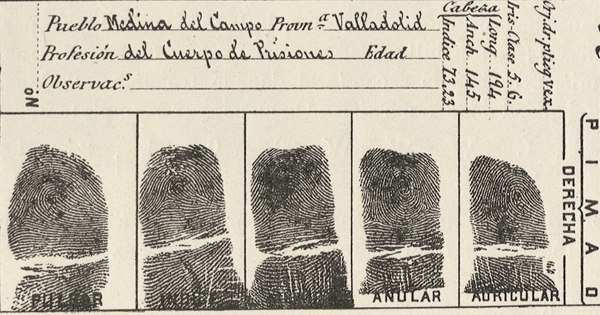 Pueblo Medina del Campo Provn.ª Valladolid
Profesión del Cuerpo de Prisiones Edad
Observac.s
No
Cabeza
Indice 73,23
Anch. 145
Long. 194
Iris-Clase 5. 6.
DERECHA
P I M A D O
PULGAR
INDICE
ANULAR
AURICULAR